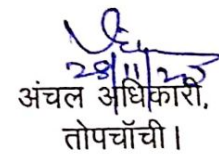 28/11/25
अंचल अधिकारी,
तोपचाँची।